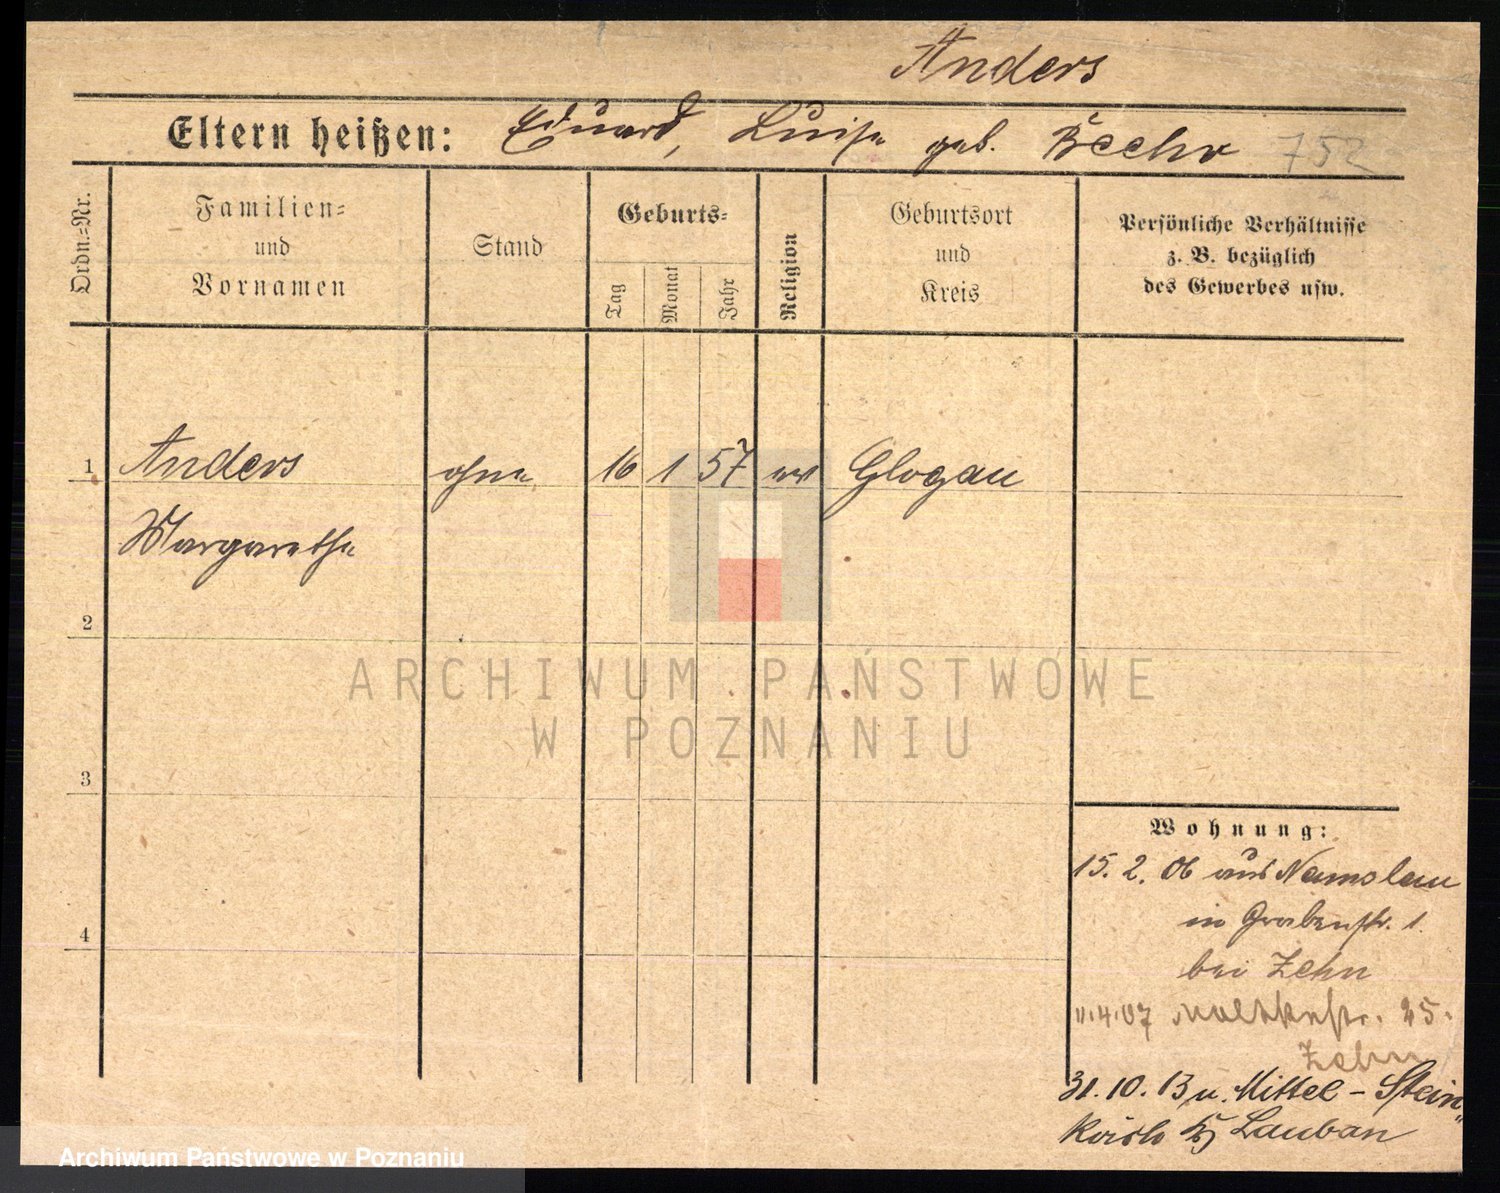 Anders
Eltern heißen: Eduard, Luise geb. Beehr 752
Ordn.-Nr.
Familien-
und
Vornamen
Stand
Geburts-
Tag
Monat
Jahr
Religion
Geburtsort
und
Kreis
Persönliche Verhältnisse
z. B. bezüglich
des Gewerbes usw.
1 Anders ohne 16 1 57 ev Glogau
Margarethe
2
3
4
ARCHIWUM PAŃSTWOWE
W POZNANIU
Wohnung:
15. 2. 06 aus Namslau
in Grabenstr. 1.
bei Zehn
11.4.07 Moltkestr. 25.
Zehn
31. 10. 13 n. Mittel-Stein
kirch Lauban
Archiwum Państwowe w Poznaniu